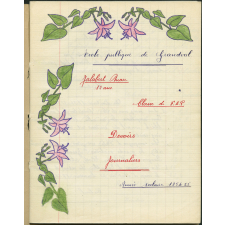 école publique de Grandval
Jalabert
13 ans
Classe de
Devoirs
Journaliers
Année scolaire